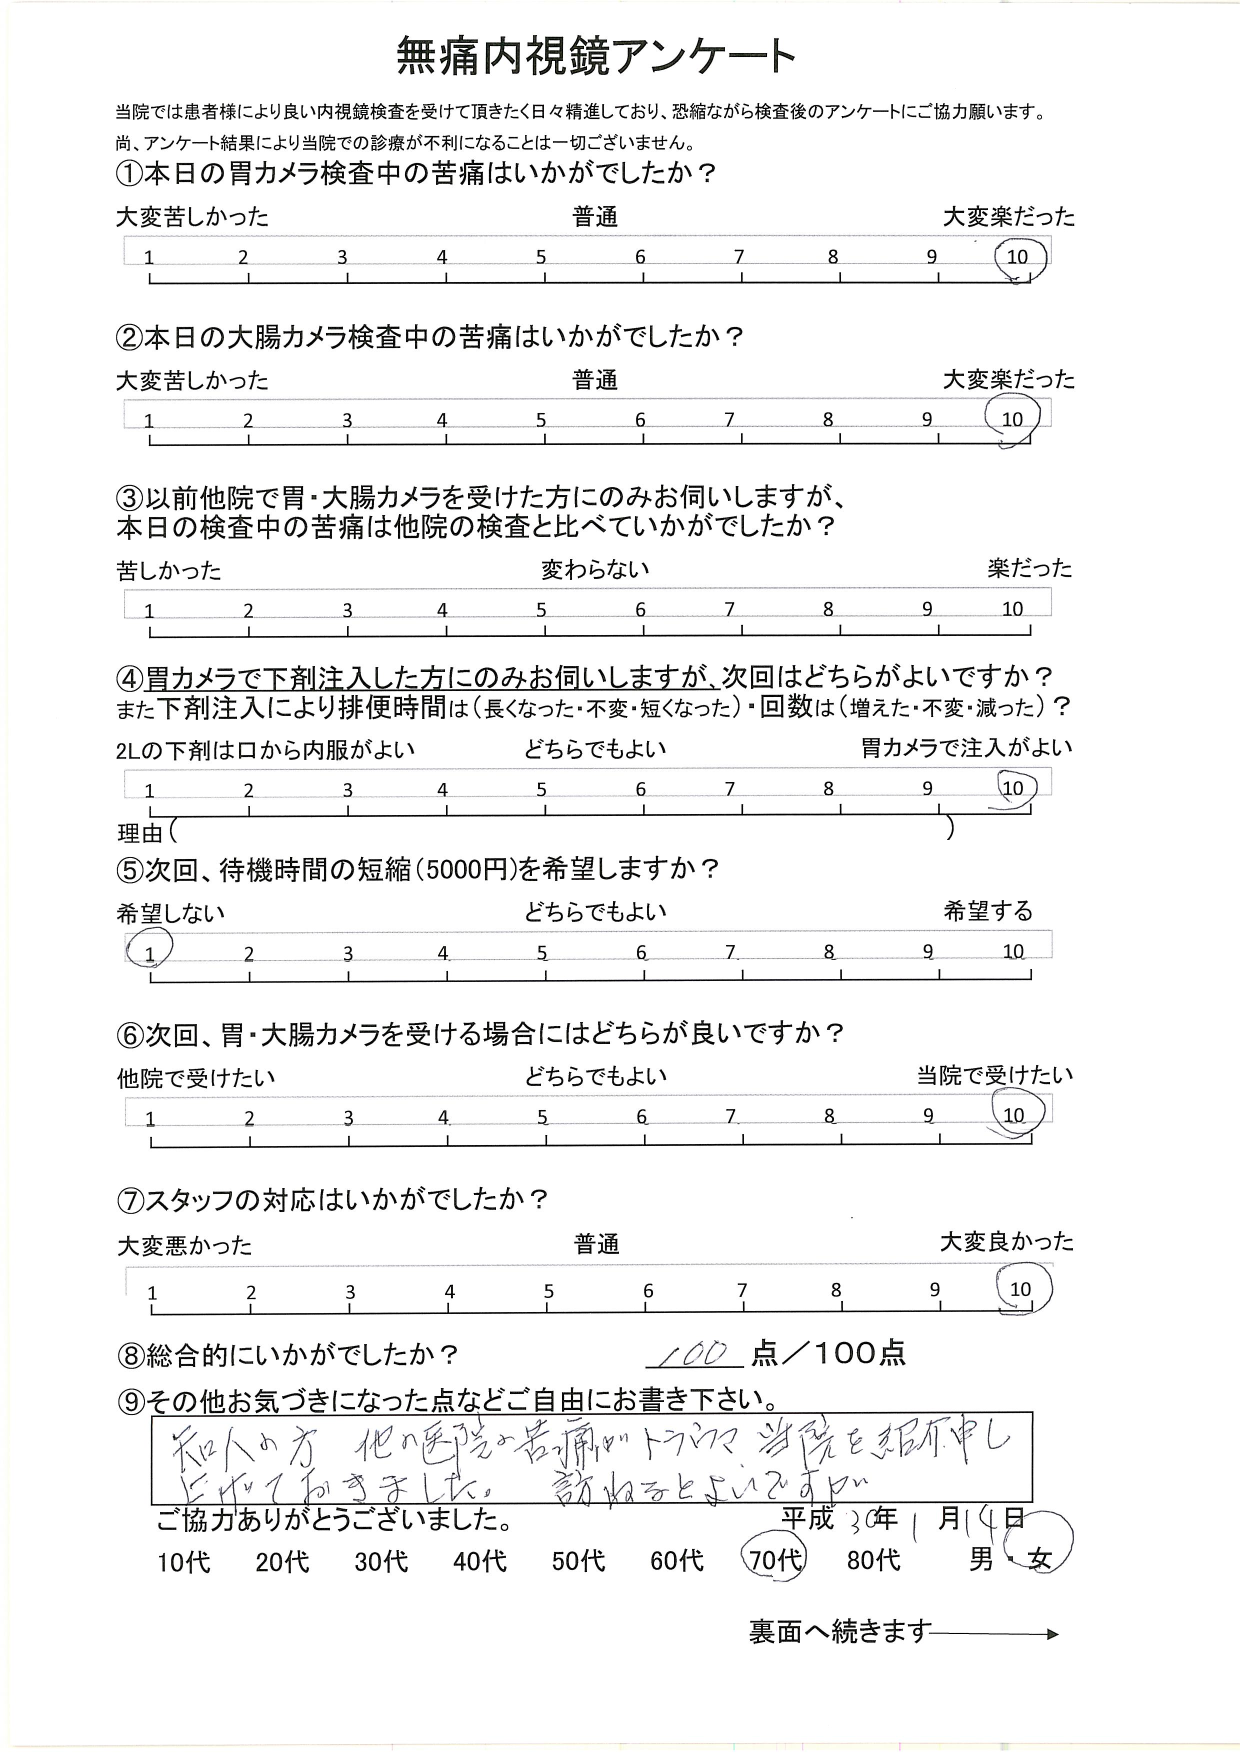 無痛内視鏡アンケート
当院では患者様により良い内視鏡検査を受けて頂きたく日々精進しており、恐縮ながら検査後のアンケートにご協力願います。
尚、アンケート結果により当院での診療が不利になることは一切ございません。
①本日の胃カメラ検査中の苦痛はいかがでしたか？
大変苦しかった 普通 大変楽だった
1 2 3 4 5 6 7 8 9 10
②本日の大腸カメラ検査中の苦痛はいかがでしたか？
大変苦しかった 普通 大変楽だった
1 2 3 4 5 6 7 8 9 10
③以前他院で胃・大腸カメラを受けた方にのみお伺いしますが、
本日の検査中の苦痛は他院の検査と比べていかがでしたか？
苦しかった 変わらない 楽だった
1 2 3 4 5 6 7 8 9 10
④胃カメラで下剤注入した方にのみお伺いしますが、次回はどちらがよいですか？
また下剤注入により排便時間は（長くなった・不変・短くなった）・回数は（増えた・不変・減った）？
2Lの下剤は口から内服がよい どちらでもよい 胃カメラで注入がよい
1 2 3 4 5 6 7 8 9 10
理由（ ）
⑤次回、待機時間の短縮（5000円）を希望しますか？
希望しない どちらでもよい 希望する
1 2 3 4 5 6 7 8 9 10
⑥次回、胃・大腸カメラを受ける場合にはどちらが良いですか？
他院で受けたい どちらでもよい 当院で受けたい
1 2 3 4 5 6 7 8 9 10
⑦スタッフの対応はいかがでしたか？
大変悪かった 普通 大変良かった
1 2 3 4 5 6 7 8 9 10
⑧総合的にいかがでしたか？ 100 点／100点
⑨その他お気づきになった点などご自由にお書き下さい。
知人の方 他の医院の苦痛がトラウマ 当院を紹介申し
上げておきました。 訪ねるとよいですが
ご協力ありがとうございました。 平成 30年 1 月14日
10代 20代 30代 40代 50代 60代 70代 80代 男・女
裏面へ続きます